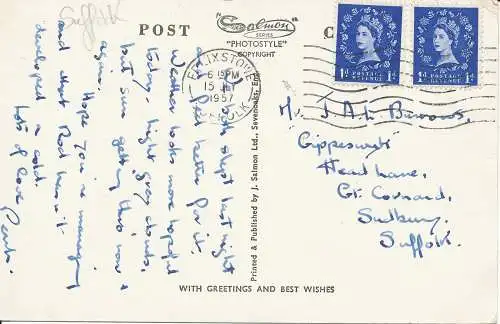 Suffolk
POST
C
Salmon
SERIES
"PHOTOSTYLE"
COPYRIGHT
FELIXSTOWE
6 15PM
15 JLY
1957
SUFFOLK
POSTAGE REVENUE
1d 1d
POSTAGE REVENUE
1d 1d
both slept last night
and feel better for it.
Weather looks more hopeful
today - light grey clouds,
but sun getting thro' now &
again.
Hope you're managing
and that Rod hasn't
developed a cold.
Lots of love
Printed & Published by J. Salmon Ltd., Sevenoaks, Eng.
Mr J. A. L. Burrows,
Gippeswyk,
Head Lane,
Gt. Cornard,
Sudbury,
Suffolk.
WITH GREETINGS AND BEST WISHES